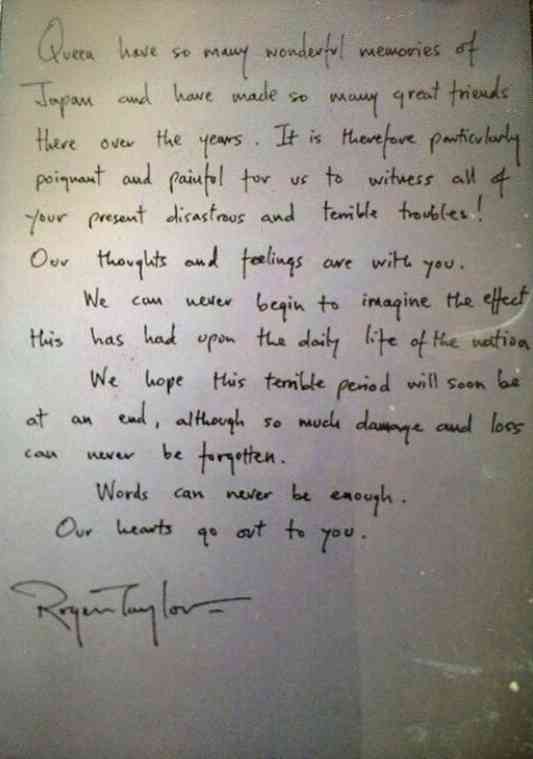 Queen have so many wonderful memories of
Japan and have made so many great friends
there over the years. It is therefore particularly
poignant and painful for us to witness all of
your present disastrous and terrible troubles!
Our thoughts and feelings are with you.
We can never begin to imagine the effect
this has had upon the daily life of the nation
We hope this terrible period will soon be
at an end, although so much damage and loss
can never be forgotten.
Words can never be enough.
Our hearts go out to you.
Roger Taylor